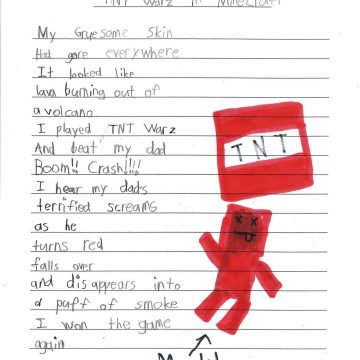 TNT Warz in Minecraft
My Gruesome Skin
Had gore everywhere
It looked like
lava burning out of
a volcano
I played TNT Warz
And beat my dad
Boom!! Crash!!!!
I hear my dad's
terrified screams
as he
turns red
falls over
and disappears into
a puff of smoke
I won the game
again
TNT